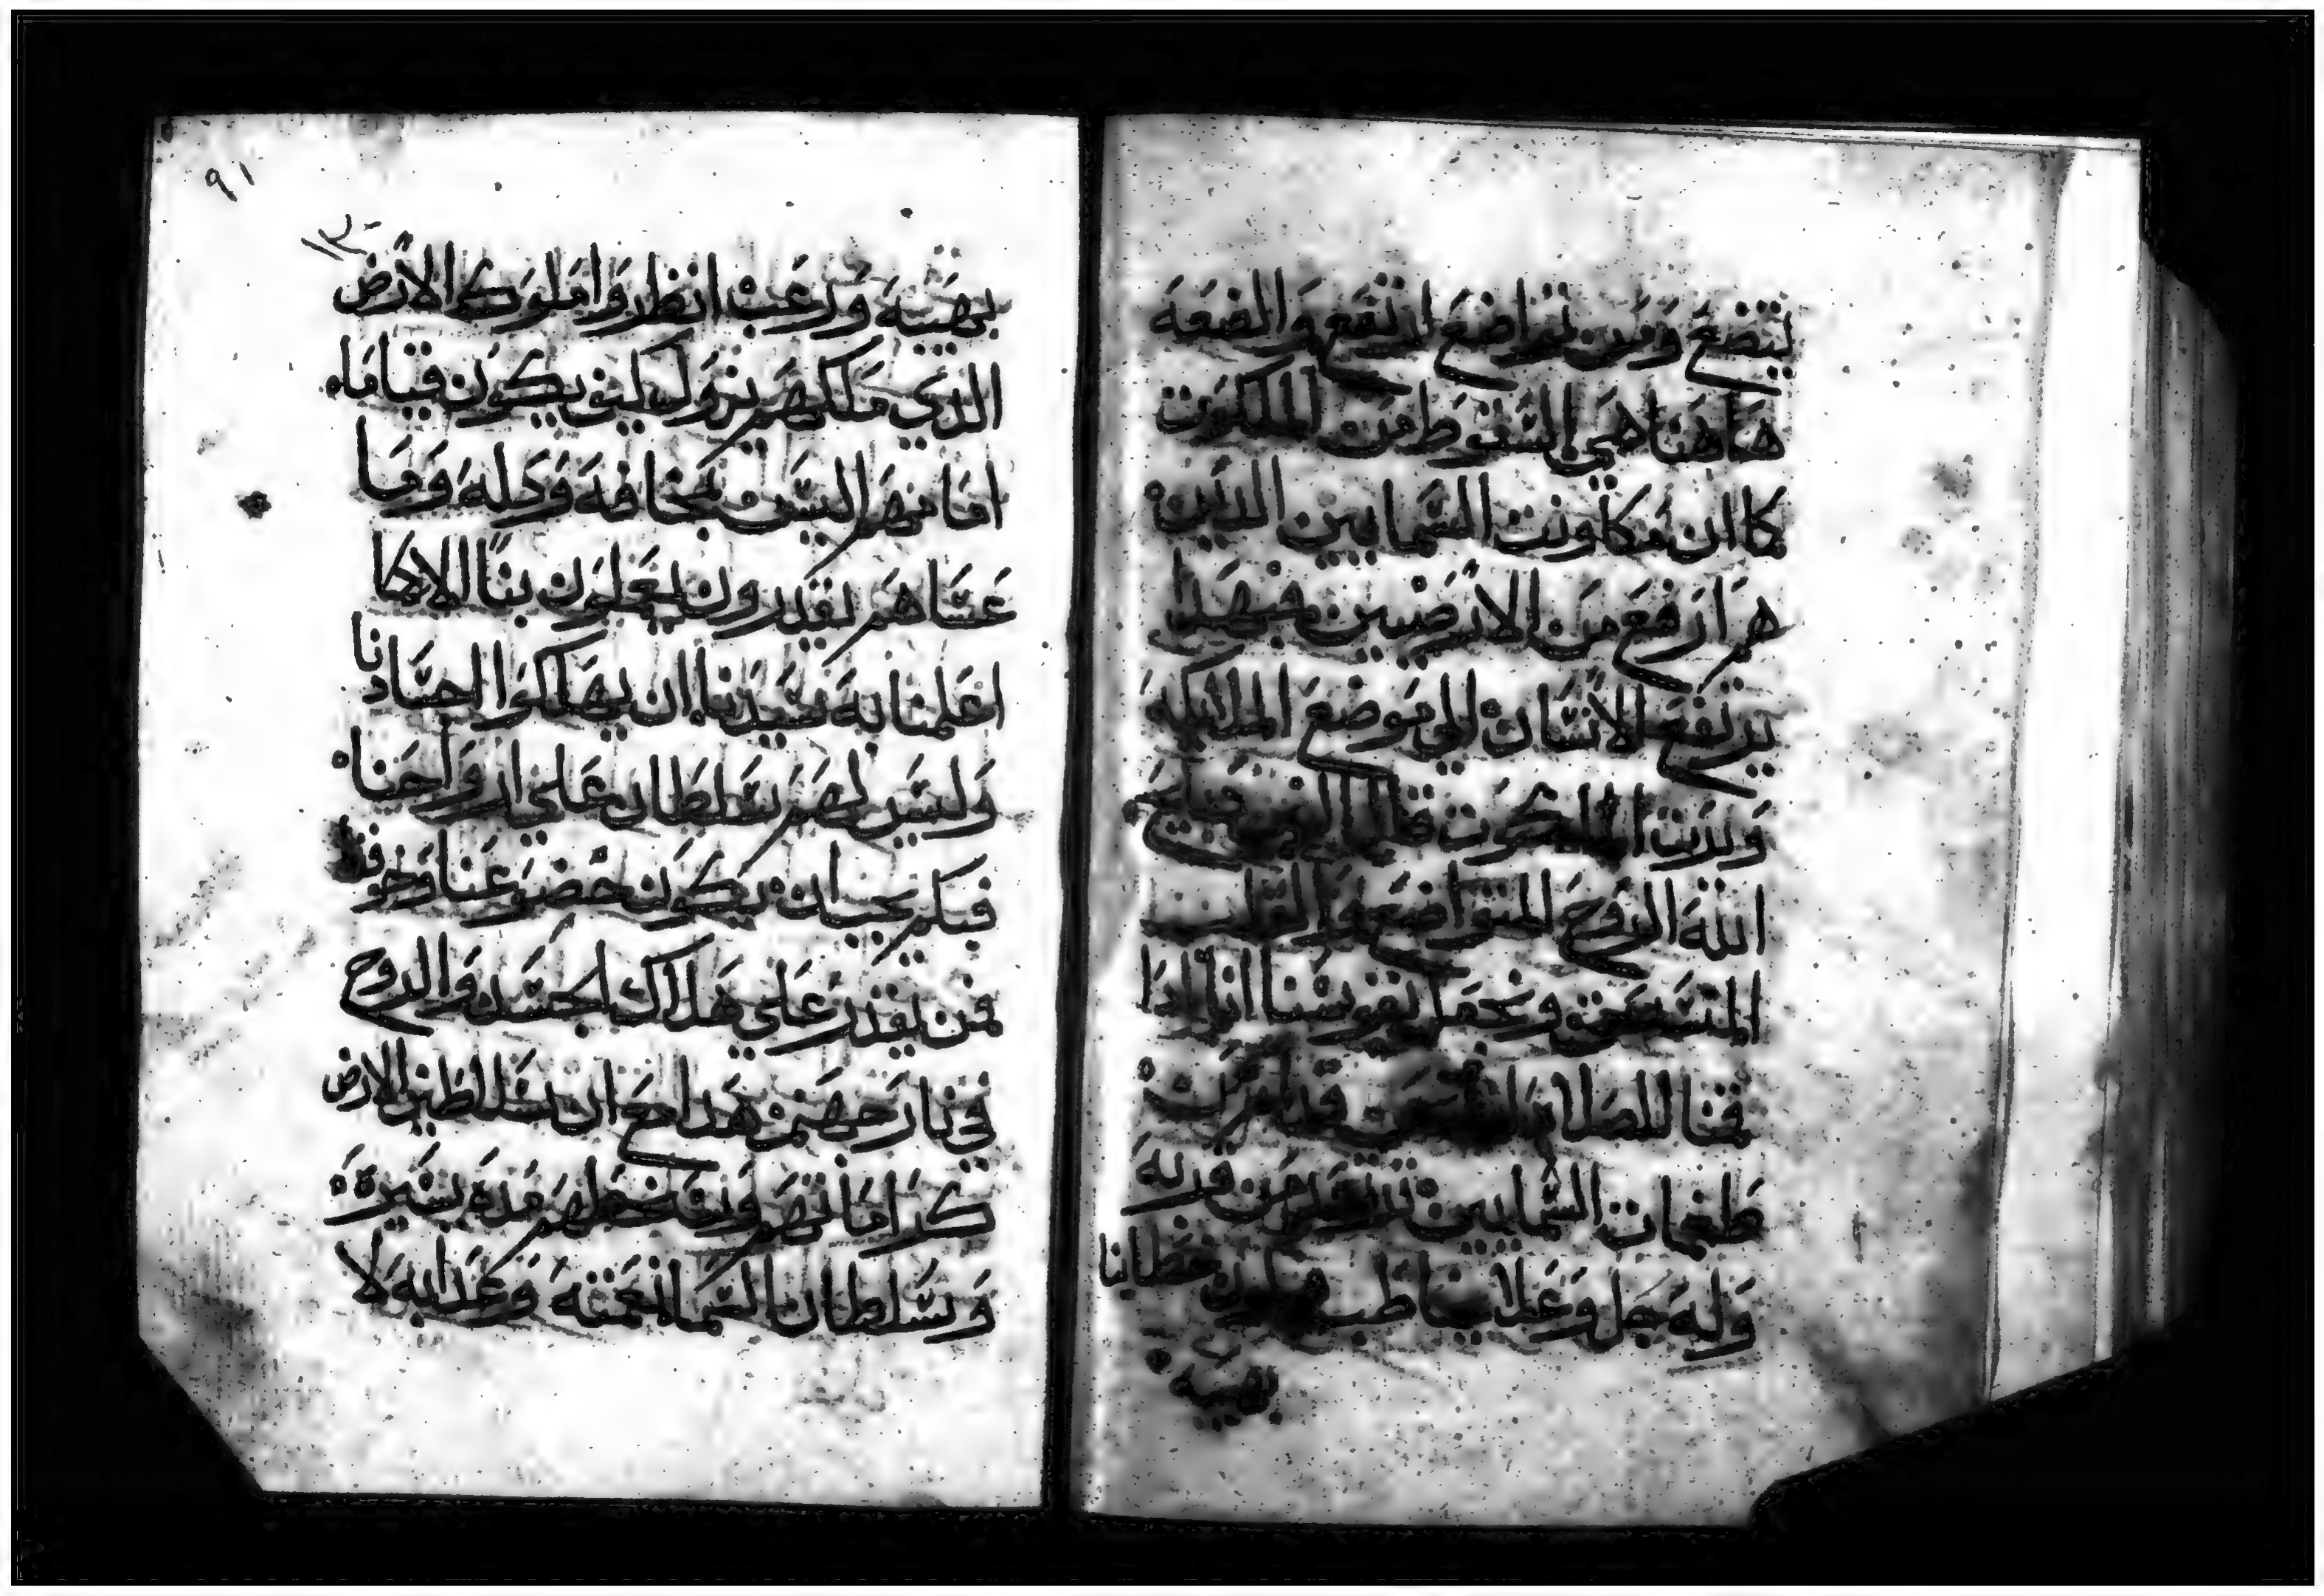 يتضع ومن تواضع ارتفع والضعه
هاهنا هي السقوط من الملكوت
كما ان ملكوت السمايين الذين
هم ارفع من الارضيين فبهدا
يرتفع الانسان الي موضع الملايكه
ويرت الملكوت
الله الروح المتواضع والقلب
المتسحق ونحمل نفوسنا اننا ادا
قمنا للصلاه قد امرك
طغمات السمايين من قربه
وله جل وعلا يخاطب خطايانا
بهيبه
٩١
١٣
بهيبه ورعب انظروا ملوك الارض
الدي ملكهم يزول كيف يكون قيام
امامهم اليس بمخافه ودله وما
عساهم يقدرون يعملون بنا الا كما
اعلمنا به سيدنا ان يهلكوا اجسادنا
وليس لهم سلطان علي ارواحنا
فبكم يجب ان يكون خضوعنا وخوفنا
فمن يقدر علي هلاك الجسد والروح
في نار جهنم هدا مع ان سلاطين الارض
كرامتهم ونخملهم مده يسيره
وسلطان السما نعمته وعدابه لا